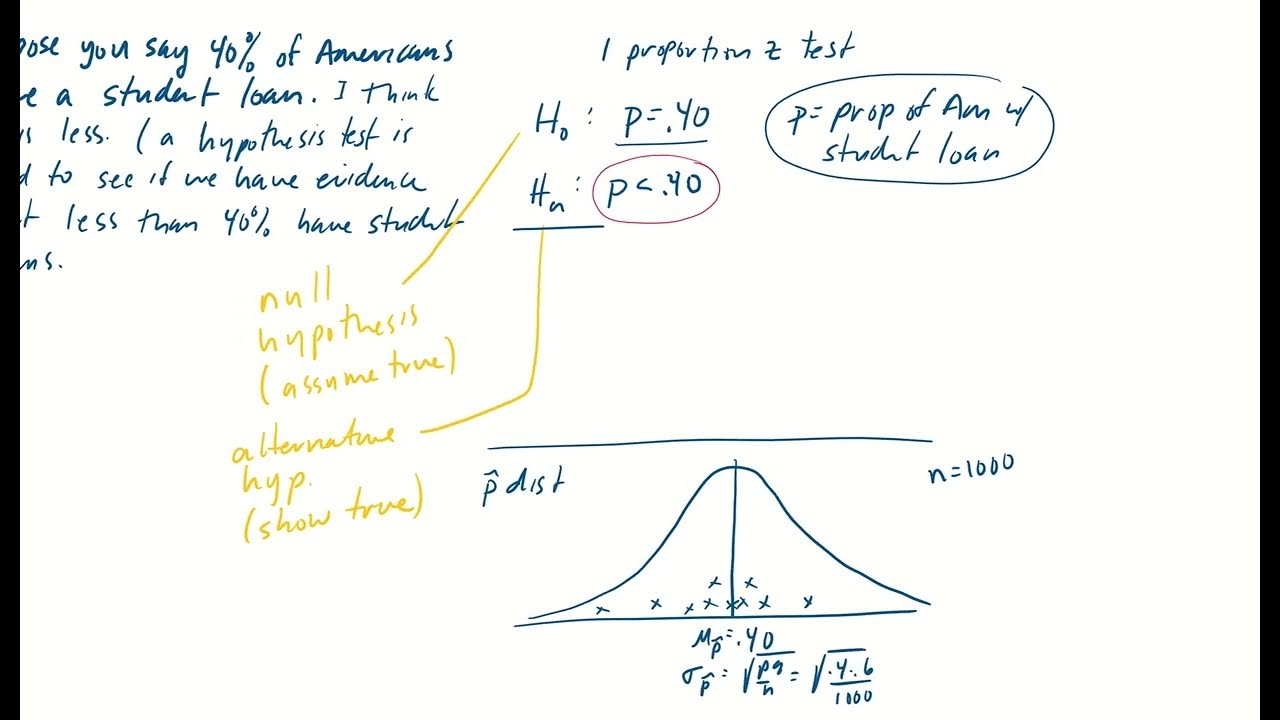 ose you say 40% of Americans
e a student loan. I think
s less. (a hypothesis test is
d to see if we have evidence
t less than 40% have student
ns.
1 proportion z test
H₀ : p = .40
Hₐ : p < .40
p = prop of Am w/
student loan
null
hypothesis
(assume true)
alternative
hyp.
(show true)
p̂ dist
n = 1000
μp̂ = .40
σp̂ = √pq/n = √.4·.6/1000